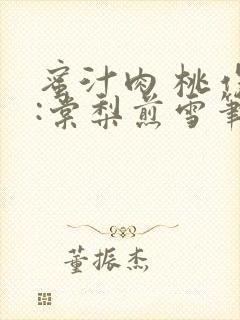 蜜汁肉桃作
:棠梨煎雪筆
董振杰